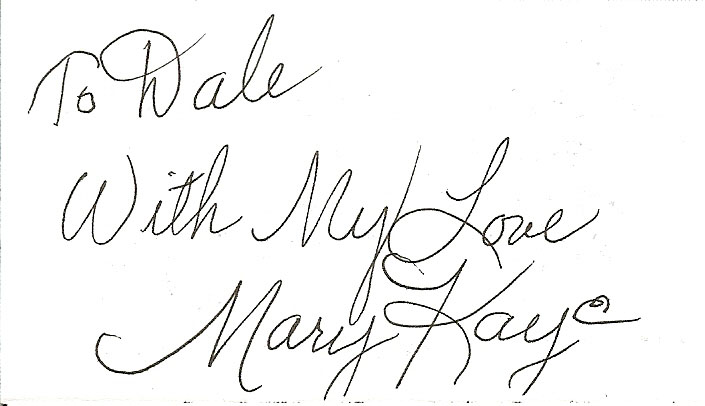 To Dale
With My Love
Mary Kaye